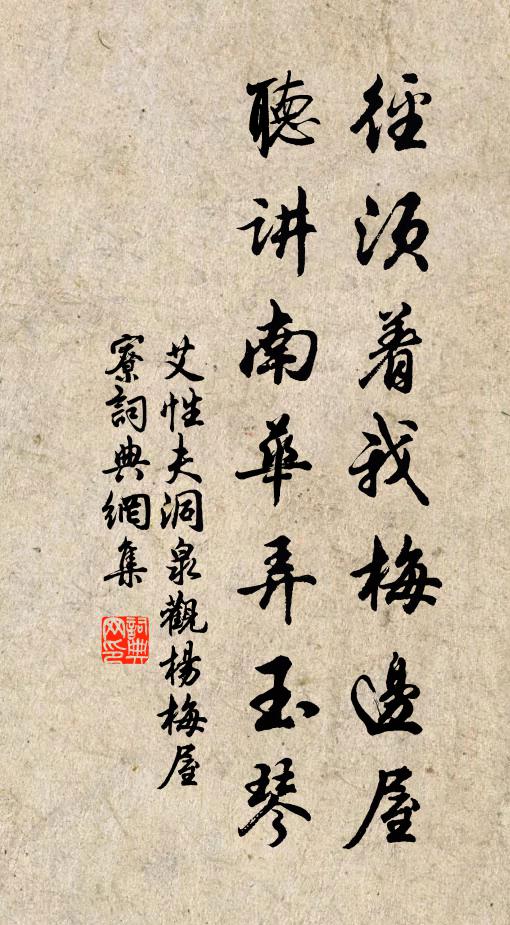 徑須着我梅邊屋
聽讲南華弄玉琴
艾性夫洞泉觀楊梅屋
寮詞典網集
詞典网印